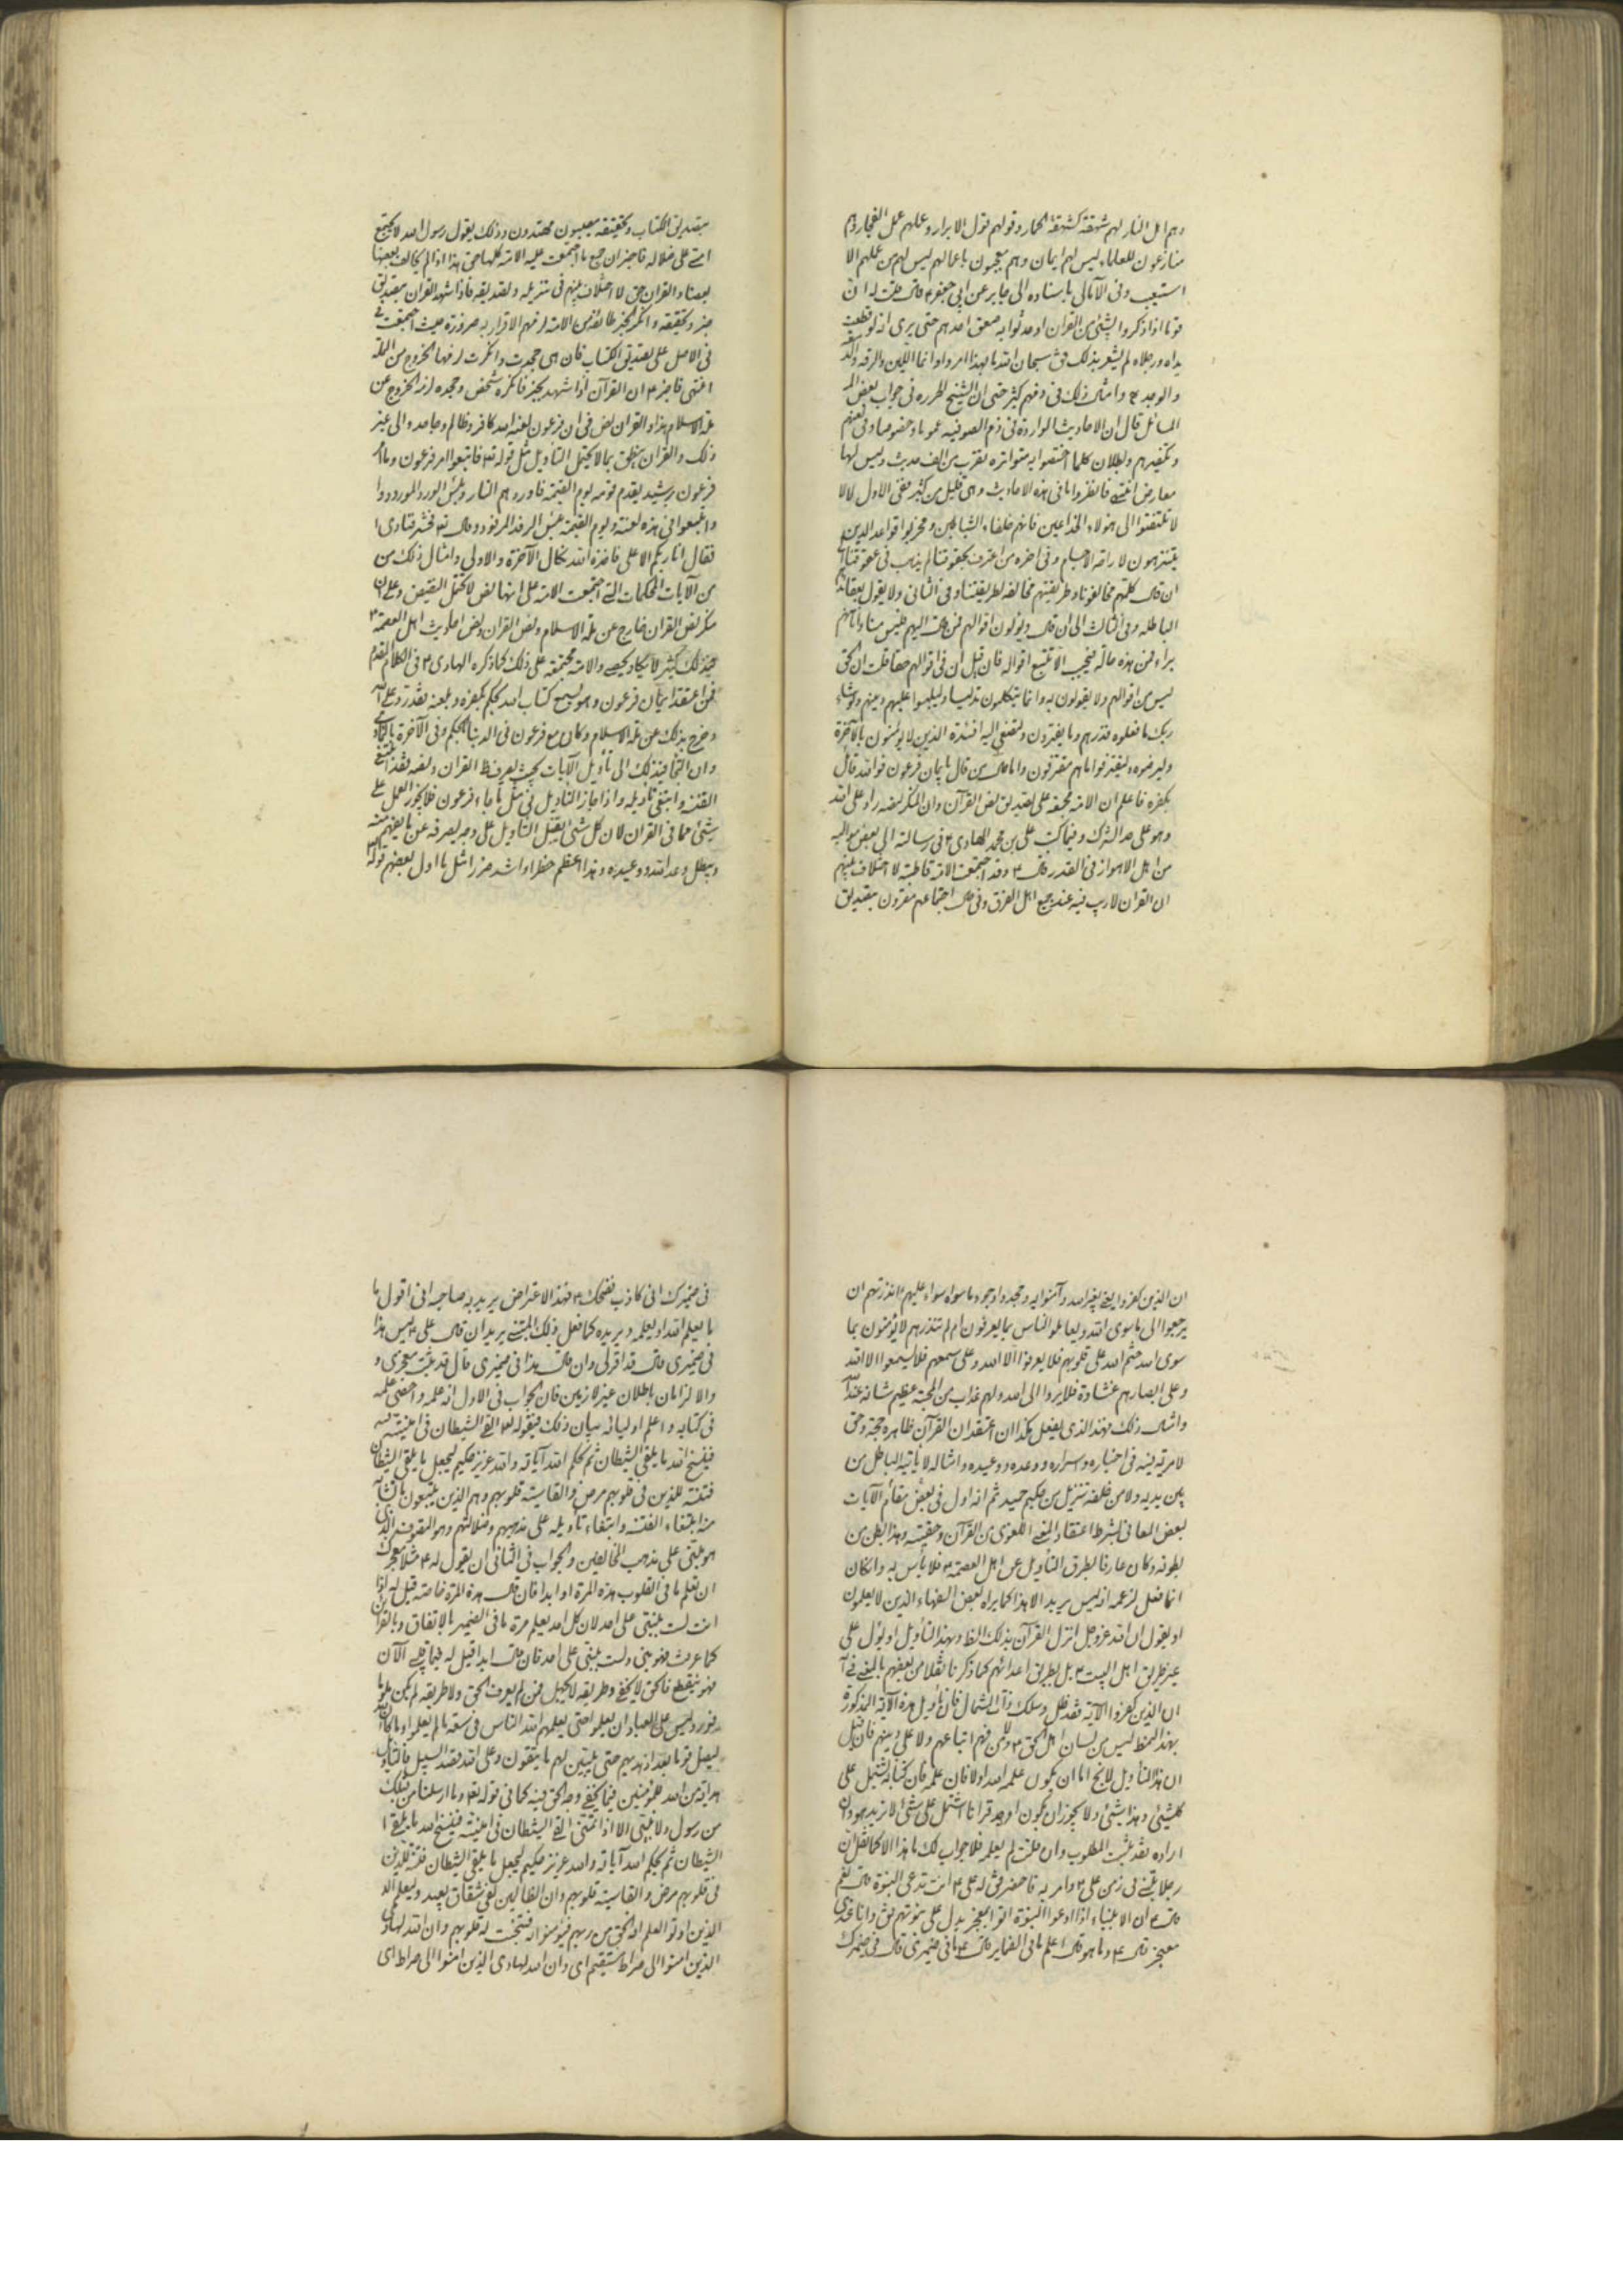 وهم اهل النار لهم شهقة كشهقة الحمار وقولهم قول الابرار وعملهم عمل الفجار وهم
منازعون للعلماء ليس لهم ايمان وهم معجبون باعمالهم ليس لهم من عملهم الا
التعب وفى الآمالى باسناده الى جابر عن ابى جعفر ع قال قلت له ان
قوما اذا ذكروا بشئ من القران او حدثوا به صعق احدهم حتى يرى انه لو قطعت
يداه ورجلاه لم يشعر بذلك فق سبحان الله ما بهذا امروا وانما اللين والرقة والدمعة
والوجد وامثال ذلك فى ذمهم كثير حتى ان الشيخ الحر ره فى جواب بعض
المسائل قال ان الاحاديث الواردة فى ذم الصوفيه عموما وخصوصا وفى لعنهم
وتكفيرهم وبطلان كلما اختصوا به متواتره تقرب من الف حديث وليس لها
معارض انتهى فانظروا ما فى هذه الاحاديث وهى قليل من كثير ففى الاول قال
لا تلتفتوا الى هؤلاء الخداعين فانهم خلفاء الشياطين ومخربوا قواعد الدين
يتزهدون لاراحة الاجسام وفى اخره من اعترف بحقوقنا لم يذهب فى عقوقنا
ان قال كلهم مخالفونا وطريقتهم مخالفه لطريقتنا وفى الثانى ولا يقول بعقائدنا
الباطله وفى الثالث الى ان قال ويؤلون اقوالهم فمن مال اليهم فليس منا وانا منهم
براء فمن هذه حاله فيجب الا تتبع اقواله فان قيل ان فى اقوالهم حقا قلت ان الحق
ليس من اقوالهم ولا يقولون به وانما يتكلمون تدليسا وليلبسوا عليهم دينهم ولو شاء
ربك ما فعلوه فذرهم وما يفترون ولتصغى اليه افئدة الذين لا يؤمنون بالآخرة
وليرضوه وليقترفوا ما هم مقترفون واما من قال بايمان فرعون فوالله قائل
بكفره فاعلم ان الامة مجمعة على تصديق نص القرآن وان المنكر لنصه راد على الله
وهو على حد الشرك وفيما كتب على بن محمد الهادى ع فى رسالته الى بعض مواليه
من اهل الاهواز فى القدر قال ع وقد اجتمعت الامة قاطبة لا اختلاف بينهم
ان القران لا ريب فيه عند جميع اهل الفرق وفى حال اجتماعهم مقرون بتصديق
بتصديق الكتاب وتحقيقه مصيبون مهتدون وذلك بقول رسول الله لا تجتمع
امتى على ضلالة فاخبر ان جميع ما اجتمعت عليه الامة كلها حق هذا اذا لم يخالف بعضها
بعضا والقران حق لا اختلاف بينهم فى تنزيله وتصديقه فاذا شهد القران بتصديق
خبر وتحقيقه وانكر الخبر طائفة من الامة لزمهم الاقرار به ضرورة حيث اجتمعت
فى الاصل على تصديق الكتاب فان هى جحدت وانكرت لزمها الخروج من الملة
انتهى فاخبر ع ان القرآن اذا شهد بخبر فانكره شخص وجحده لزمه الخروج عن
ملة الاسلام هذا والقران نص فى ان فرعون لعنه الله كافر وظالم وجاحد والى غير
ذلك والقران ينطق بما لا يحتمل التاويل مثل قوله تع فاتبعوا امر فرعون وما امر
فرعون برشيد يقدم قومه يوم القيمة فاوردهم النار وبئس الورد المورود
واتبعوا فى هذه لعنة ويوم القيمة بئس الرفد المرفود وقال تع فحشر فنادى
فقال انا ربكم الاعلى فاخذه الله نكال الآخرة والاولى وامثال ذلك من
من الآيات المحكمات التى اجتمعت الامة على انها نص لا تحتمل النقيض وعلى ان
منكر نص القران خارج عن ملة الاسلام ونص القران ونص احاديث اهل العصمة ع
فى ذلك كثير لا يكاد يحصى والامة مجتمعة على ذلك كما ذكره الهادى ع فى الكلام المتقدم
فمن اعتقد ايمان فرعون وهو يسمع كتاب الله يحكم بكفره ويلعنه فقد رد على الله
وخرج بذلك عن ملة الاسلام وكان مع فرعون فى الدنيا بالحكم وفى الآخرة
وان التجأ فى ذلك الى تأويل الآيات بحيث يصرف ظ القران ونصه فقد ابتغى
الفتنة وابتغى تاويله واذا جاز التاويل فى مثل ما جاء فى فرعون فلا يجوز العمل على
شئ مما فى القران لان كل شئ يقبل التاويل على وجه يصرفه عن ما يفهم منه
ويبطل وعد الله ووعيده وهذا اعظم خطرا واشد ضررا مثل ما اول بعضهم قوله
ان الذين كفروا يعنى بغير الله وآمنوا به وجحدوا وجود ما سواه سواء عليهم ءانذرتهم ان
يرجعوا الى ما سوى الله ويعاملوا الناس بما يعرفون ام لم تنذرهم لا يؤمنون بما
سوى الله ختم الله على قلوبهم فلا يعرفوا الا الله وعلى سمعهم فلا يسمعوا الا الله
وعلى ابصارهم غشاوة فلا يروا الى الله ولهم عذاب من المحبة عظيم شانه عند الله
وامثال ذلك فهذا الذى يفعل هكذا ان اعتقد ان القرآن ظاهره حجة وحق
لا مرية فيه فى اخباره واسراره ووعده ووعيده وامثاله لا ياتيه الباطل من
بين يديه ولا من خلفه تنزيل من حكيم حميد ثم انه اول فى بعض مقام الآيات
بعض المعانى بشرط اعتقاد المعنى اللغوى من القرآن وحقيته وهذا بطن من
بطونه وكان عارفا بطرق التأويل عن اهل العصمة ع فلا بأس به وان كان
انما فعل لزعمه انه ليس يريد الا هذا كما يراه بعض السفهاء الذين لا يعلمون
او يقول ان الله عزوجل انزل القرآن بذلك الظ وبهذا التأويل او يؤل على
غير طريق اهل البيت ع بل بطريق اعدائهم كما ذكرنا نقلا من بعضهم بالمعنى فى
ان الذين كفروا الآية فقد ضل وسلك ذات الشمال فان تأويل هذه الآية المذكورة
بهذا النمط ليس من لسان اهل الحق ع ولا من فهم اتباعهم ولا على دينهم فان قيل
ان هذا التأويل لا يخ اما ان يكون علمه الله اولا فان علمه فان كتابه اشتمل على
كلشئ وهذا شئ ولا يجوز ان يكون اوجد قرانا اشتمل على شئ لا يريده وان
اراده فقد ثبت المطلوب وان قلت لم يعلمه فلا جواب لك ما هذا الا كما نقل ان
رجلا تنبى فى زمن على ع وامر به فاحضر فق له على ع انت تدعى النبوة قال نعم
قال ع ان الانبياء اذا ادعوا النبوة اتوا بمعجز يدل على نبوتهم فق وانا عندى
معجز قال ع وما هو قال اعلم ما فى الضماير قال ع ما فى ضميرى قال فى ضميرك
فى ضميرك انى كاذب فضحك ع فهذا الاعتراض يريد به صاحبه انى اقول ما
ما يعلم الله او يعلمه ويريده كما فعل ذلك المتنبى يريد ان قال على ع ليس هذا
فى ضميرى قال قد اقر لى وان قال هذا فى ضميرى قال قد ثبت معجزى و
والالزامان باطلان غير لازمين فان الجواب فى الاول انه علمه واحصى علمه
فى كتابه واعلم اوليائه بيان ذلك فبقوله تع القى الشيطان فى امنيته
فينسخ الله ما يلقى الشيطان ثم يحكم الله آياته والله عزيز حكيم ليجعل ما يلقى الشيطان
فتنة للذين فى قلوبهم مرض والقاسية قلوبهم وهم الذين يتبعون ما تشابه
منه ابتغاء الفتنة وابتغاء تاويله على مذهبهم وضلالتهم وهو
هو مبنى على مذهب المخالفين والجواب فى الثانى ان يقول له ع مثلا معجزك
ان تعلم ما فى القلوب هذه المرة او ابدا فان قال هذه المرة خاصة قيل له اذا
انت لست بنبى على احد لان كل احد يعلم مرة ما فى الضمير بالاتفاق وبالقرائن
كما عرفت فهو نبى ولست بنبى على احد فان قال ابدا قيل له فما قلبى الآن
فهو ينقطع فالحق لا يخفى وطريقه لا يجهل فمن لم يعرف الحق ولا طريقه لم يكن
وليس على العباد ان يعلموا حتى يعلمهم الله الناس فى سعة ما لم يعلموا وما كان الله
ليضل قوما بعد اذ هديهم حتى يبين لهم ما يتقون وعلى الله قصد السبيل
هداية من الله للمؤمنين فيما يخفى وجه الحق فيه كما فى قوله تع وما ارسلنا من قبلك
من رسول ولا نبى الا اذا تمنى القى الشيطان فى امنيته فينسخ الله ما يلقى
الشيطان ثم يحكم الله آياته والله عزيز حكيم ليجعل ما يلقى الشيطان فتنة للذين
فى قلوبهم مرض والقاسية قلوبهم وان الظالمين لفى شقاق بعيد وليعلم
الذين اوتوا العلم انه الحق من ربهم فيؤمنوا به فتخبت له قلوبهم وان الله لهادى
الذين امنوا الى صراط مستقيم اى وان الله لهادى الذين امنوا الى صراط اى